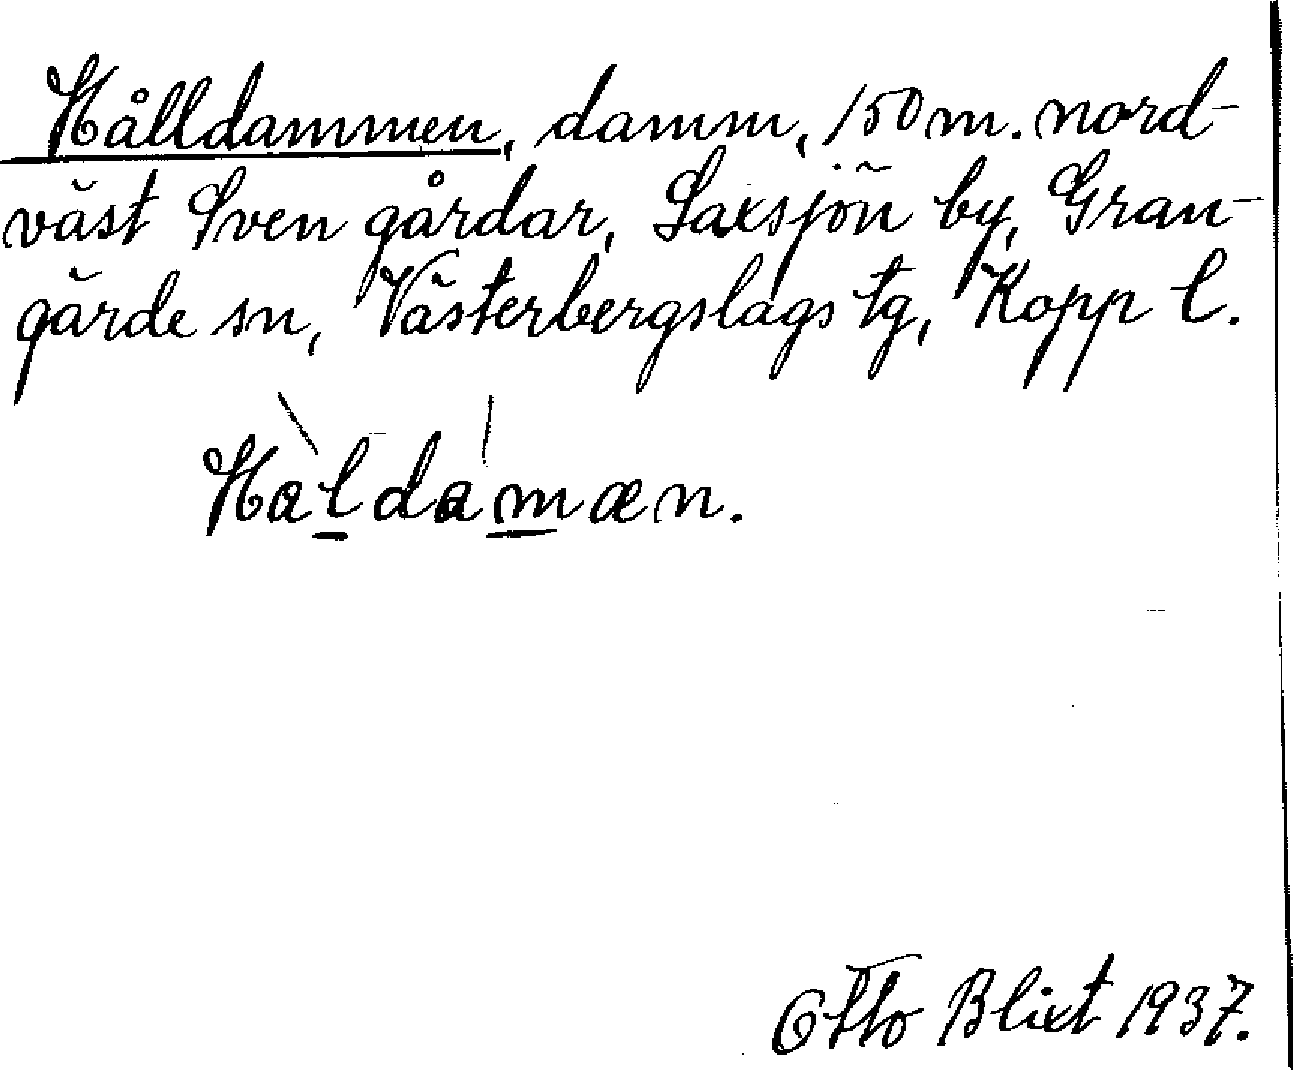 Hålldammen, damm, 150 m. nord-
väst Sven gårdar, Saxsjön by, Gran-
gärde sn, Västerbergslags tg, Kopp l.
Haldamæn.
Otto Blixt 1937.